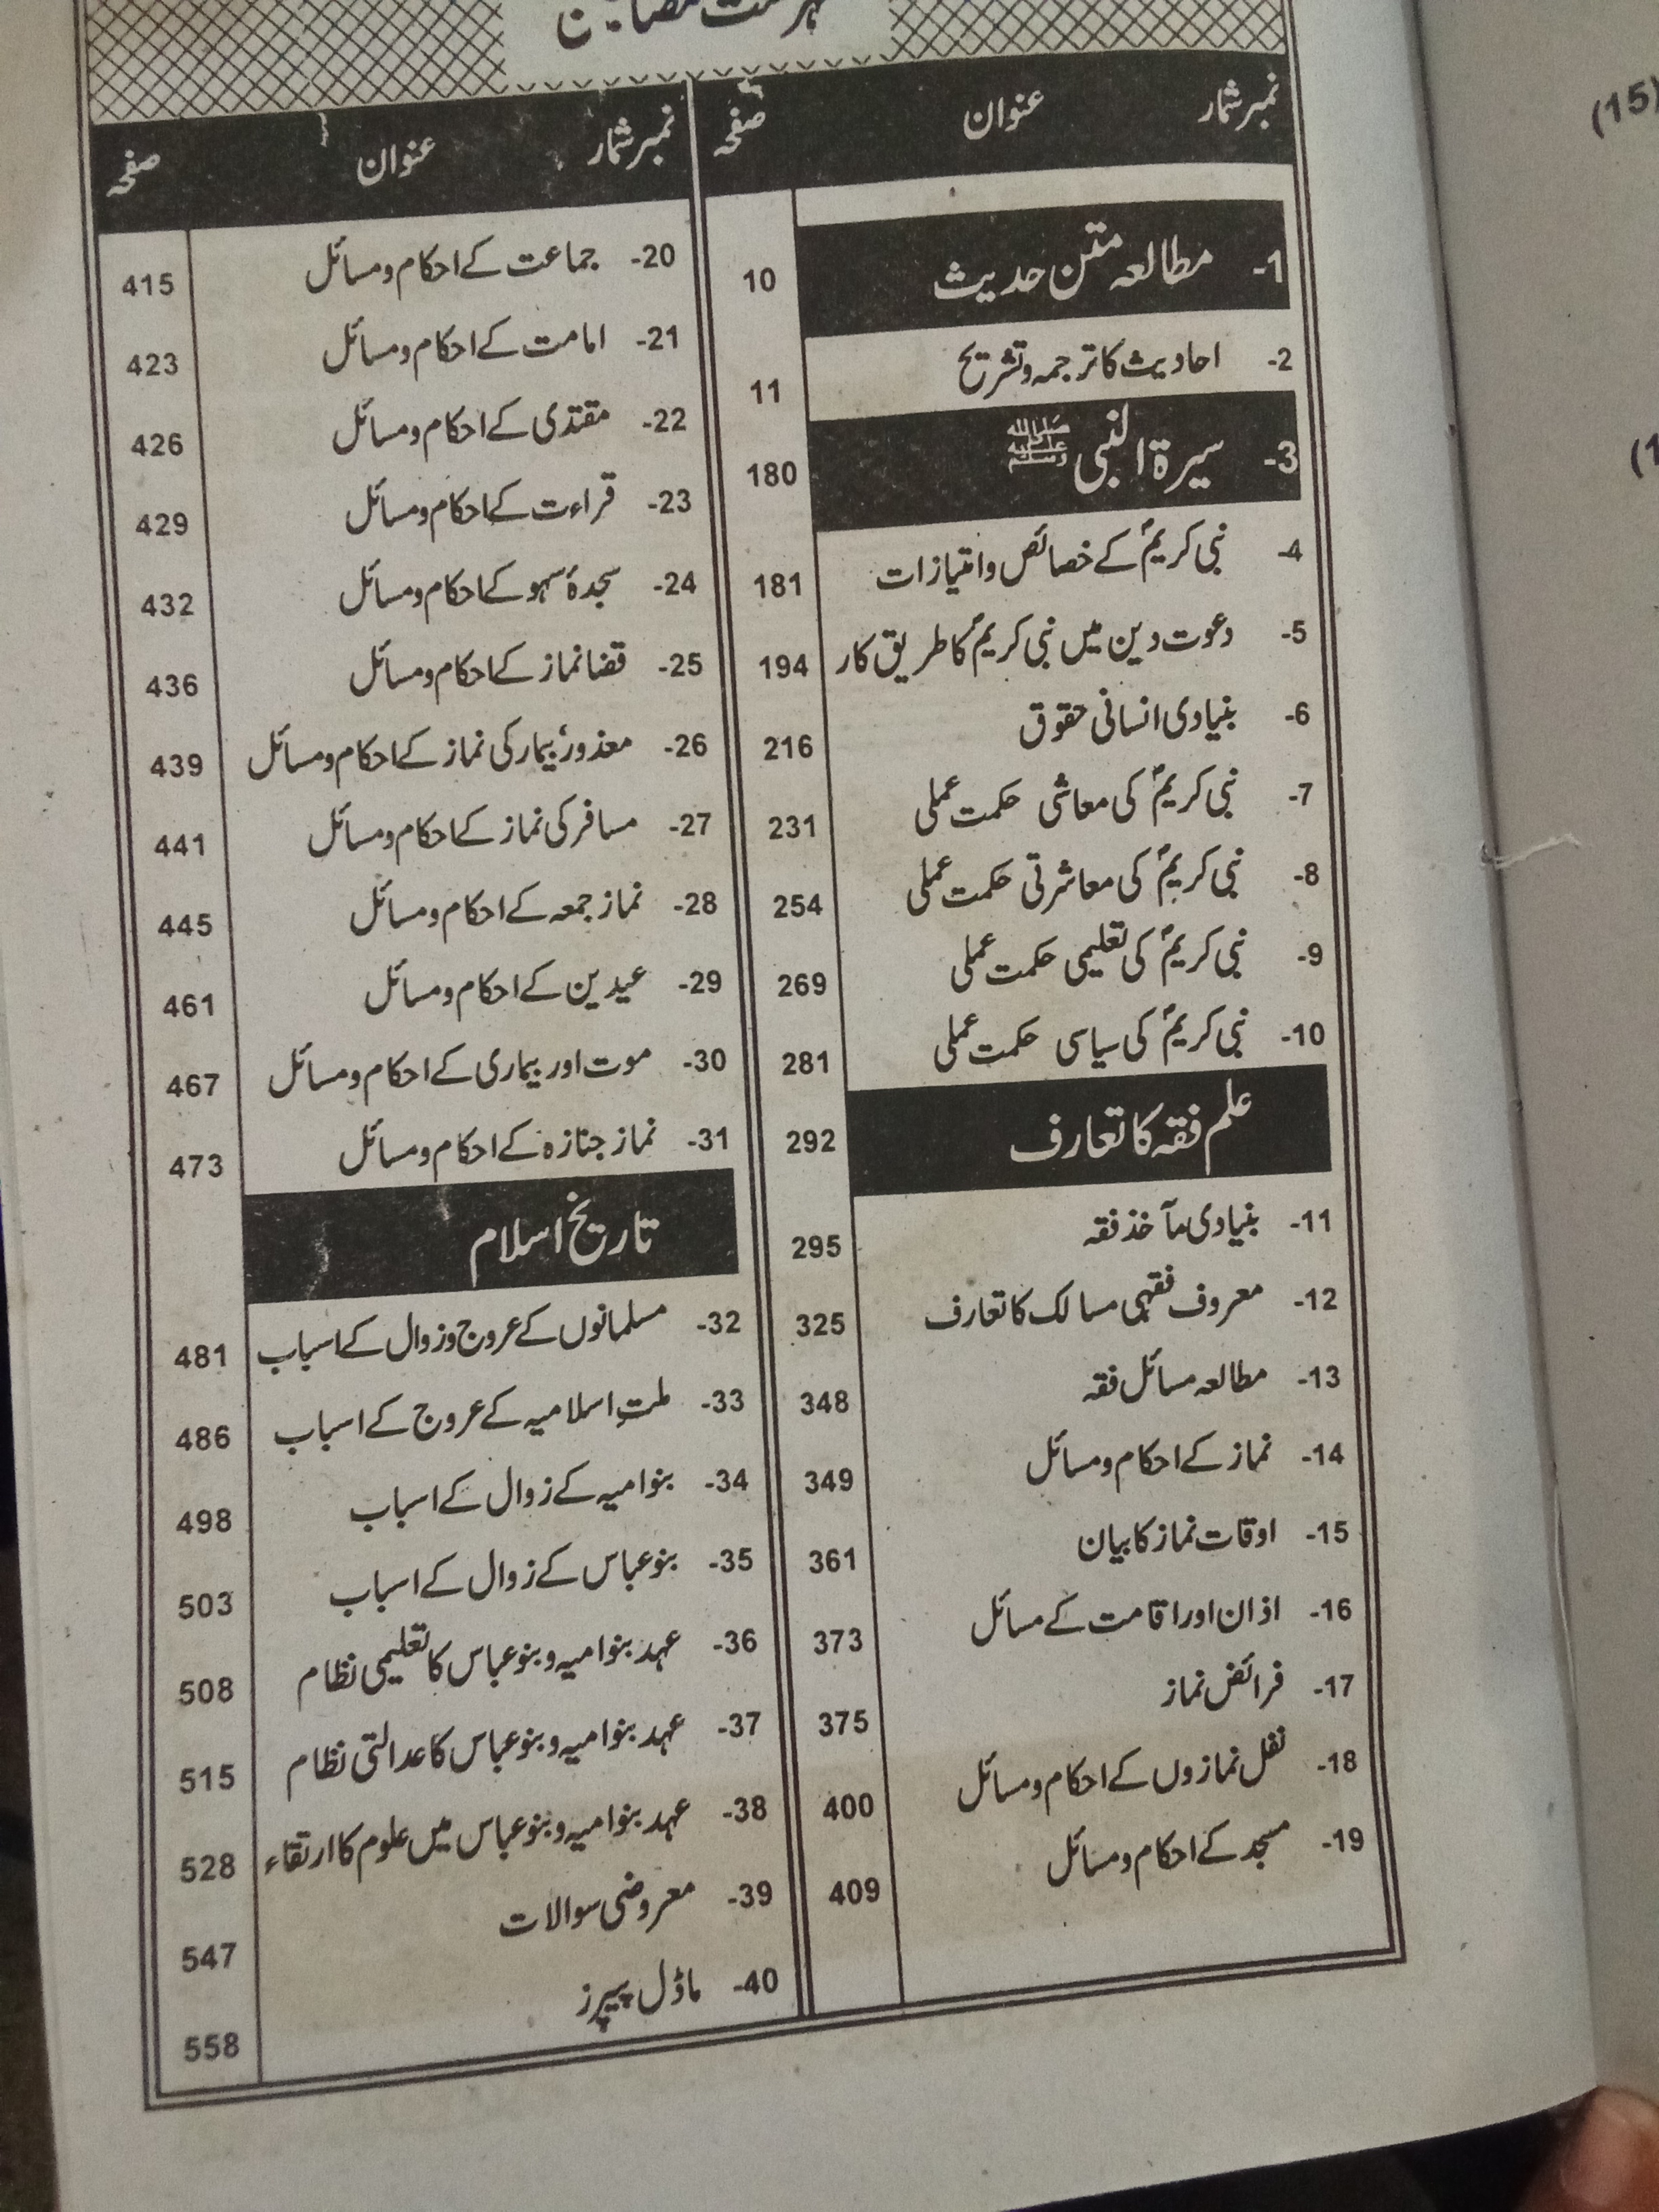 فہرست مضامین
نمبر شمار عنوان صفحہ
1- مطالعہ متن حدیث 10
2- احادیث کا ترجمہ و تشریح 11
3- سیرۃ النبی ﷺ 180
4- نبی کریمؐ کے خصائص و امتیازات 181
5- دعوت دین میں نبی کریمؐ کا طریق کار 194
6- بنیادی انسانی حقوق 216
7- نبی کریمؐ کی معاشی حکمت عملی 231
8- نبی کریمؐ کی معاشرتی حکمت عملی 254
9- نبی کریمؐ کی تعلیمی حکمت عملی 269
10- نبی کریمؐ کی سیاسی حکمت عملی 281
علم فقہ کا تعارف 292
11- بنیادی مآخذ فقہ 295
12- معروف فقہی مسالک کا تعارف 325
13- مطالعہ مسائل فقہ 348
14- نماز کے احکام و مسائل 349
15- اوقات نماز کا بیان 361
16- اذان اور اقامت کے مسائل 373
17- فرائض نماز 375
18- نفل نمازوں کے احکام و مسائل 400
19- مسجد کے احکام و مسائل 409
نمبر شمار عنوان صفحہ
20- جماعت کے احکام و مسائل 415
21- امامت کے احکام و مسائل 423
22- مقتدی کے احکام و مسائل 426
23- قراءت کے احکام و مسائل 429
24- سجدۂ سہو کے احکام و مسائل 432
25- قضا نماز کے احکام و مسائل 436
26- معذور، بیمار کی نماز کے احکام و مسائل 439
27- مسافر کی نماز کے احکام و مسائل 441
28- نماز جمعہ کے احکام و مسائل 445
29- عیدین کے احکام و مسائل 461
30- موت اور بیماری کے احکام و مسائل 467
31- نماز جنازہ کے احکام و مسائل 473
تاریخ اسلام
32- مسلمانوں کے عروج و زوال کے اسباب 481
33- ملتِ اسلامیہ کے عروج کے اسباب 486
34- بنو امیہ کے زوال کے اسباب 498
35- بنو عباس کے زوال کے اسباب 503
36- عہد بنو امیہ و بنو عباس کا تعلیمی نظام 508
37- عہد بنو امیہ و بنو عباس کا عدالتی نظام 515
38- عہد بنو امیہ و بنو عباس میں علوم کا ارتقاء 528
39- معروضی سوالات 547
40- ماڈل پیپرز 558
(15)